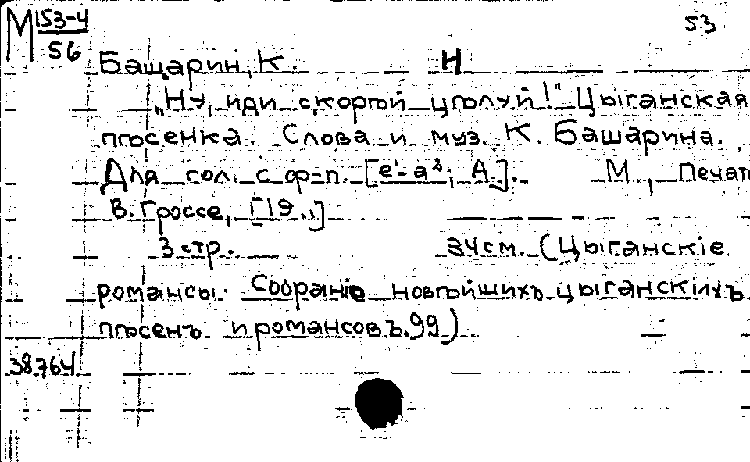 М 153-4
56
53
Башарин, К.
Н
„Ну, иди скорѣй цѣлуй!" Цыганская
пѣсенка. Слова и муз. К. Башарина.
Для гол. с ф-п. [e¹-a²; A.]. М., Печат
В. Гроссе, [19..]
3 стр. 34 см. (Цыганскіе
романсы. Собраніе новѣйшихъ цыганскихъ
пѣсенъ и романсовъ. 99)
38764